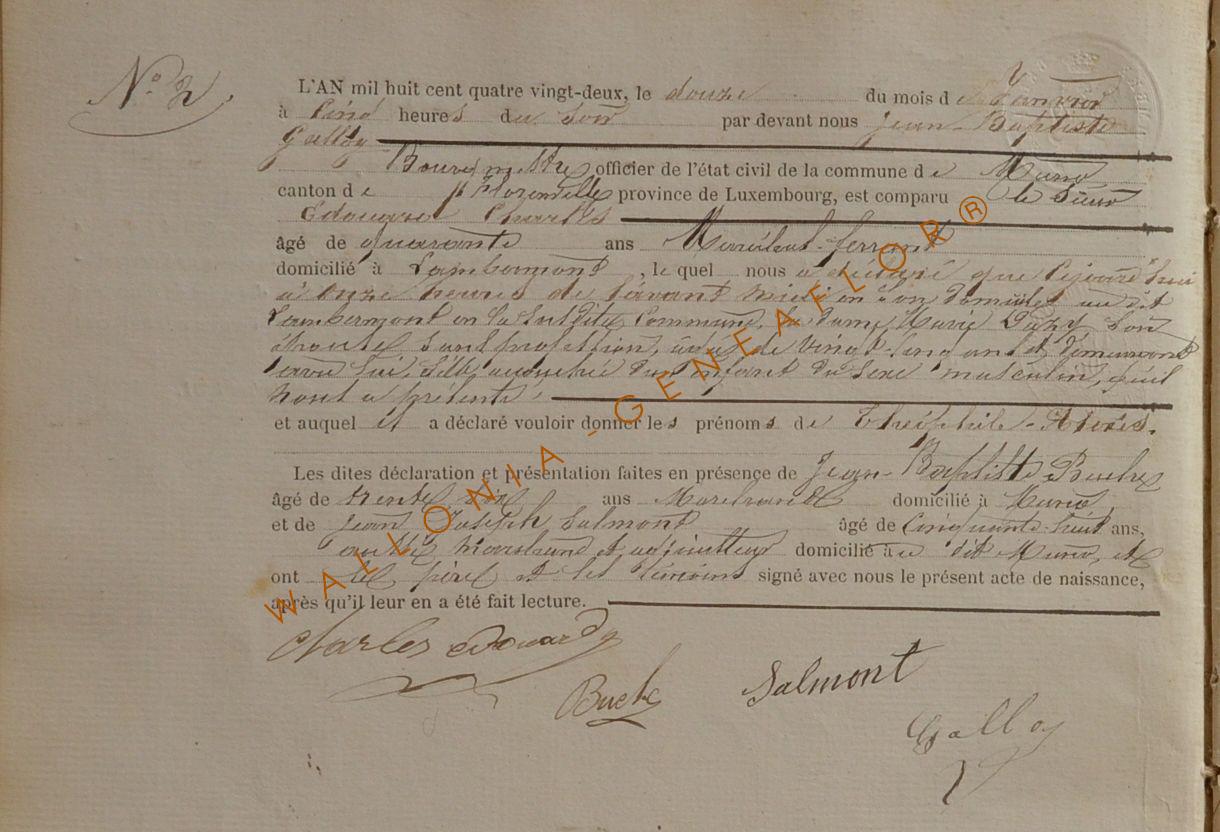 N° 2.
L'AN mil huit cent quatre vingt-deux, le douze du mois de Janvier
à Cinq heures du Soir par devant nous Jean-Baptiste
Galloy
Bourgmestre officier de l'état civil de la commune de Muno
canton de Florenville province de Luxembourg, est comparu le Sieur
Edouard Charles
âgé de quarante ans Maréchal-ferrant
domicilié à Lambermont, lequel nous a déclaré que cejourd'hui
à onze heures de l'avant midi en son domicile au dit
Lambermont en la susdite Commune, la dame Marie son
épouse sans profession, âgée de vingt-cinq ans et demeurant
avec lui, s'est accouchée d'un enfant du sexe masculin, qu'il
nous a présenté
et auquel il a déclaré vouloir donner les prénoms de Théophile-Alexis.
Les dites déclaration et présentation faites en présence de Jean-Baptiste Buche
âgé de trente six ans Marchand domicilié à Muno
et de Jean Joseph Salmont âgé de Cinquante-huit ans,
domicilié au dit Muno, et
ont les père et les témoins signé avec nous le présent acte de naissance,
après qu'il leur en a été fait lecture.
Charles edouard
Buche Salmont
Galloy
WALLONIA-GENEAFLOR®